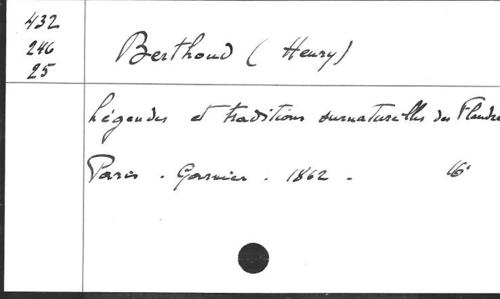 432
246
25
Berthoud (Henry)
Légendes et traditions surnaturelles des Flandre
Paris . Garnier . 1862 -
16°